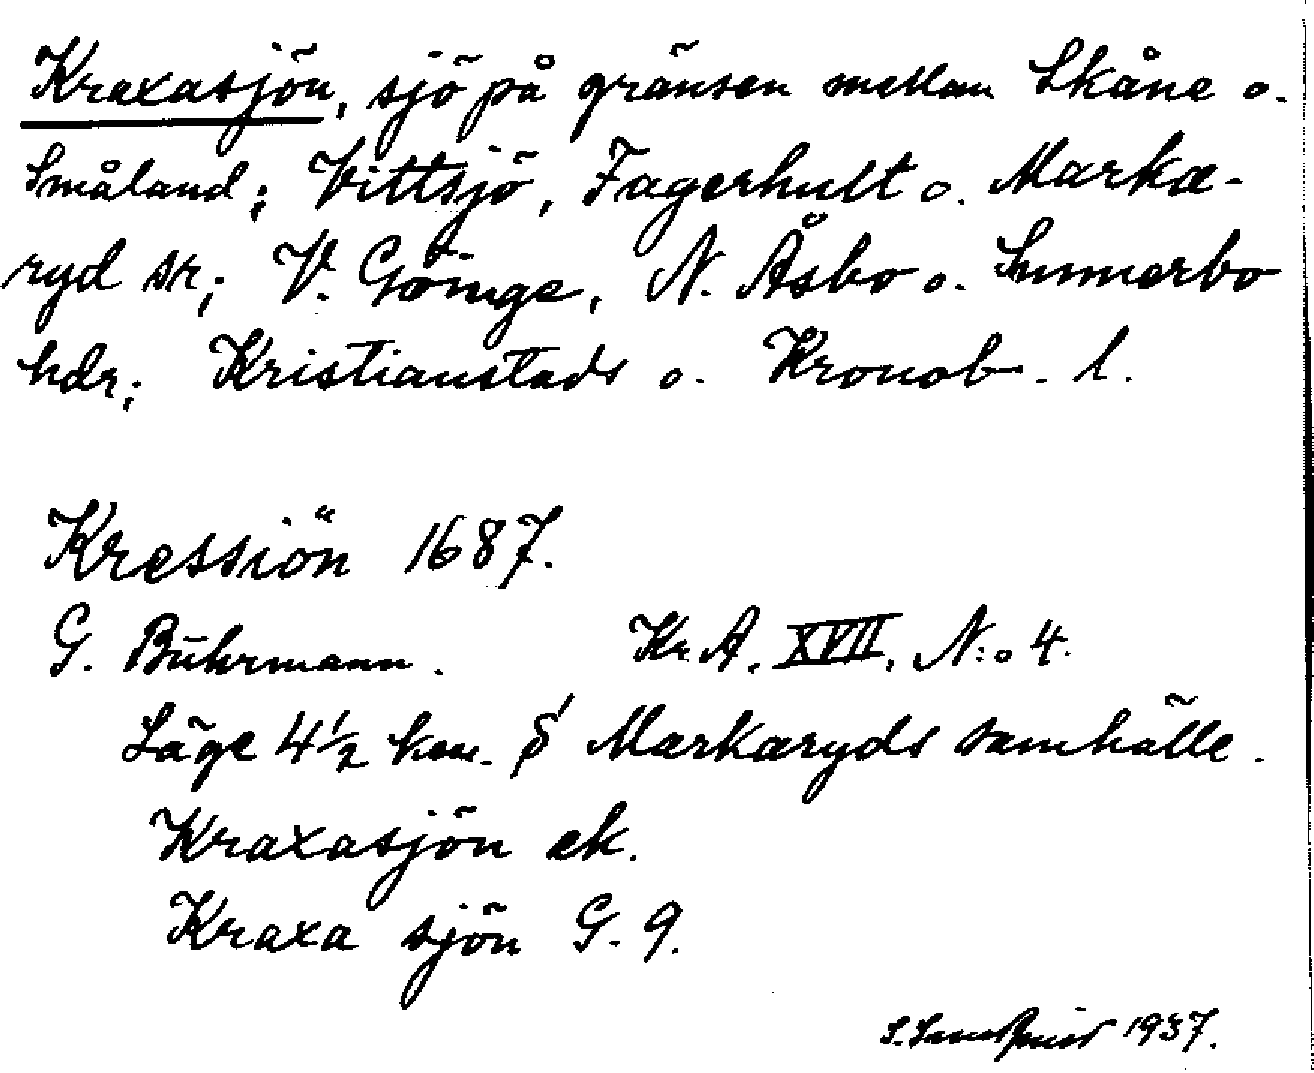 Kraxasjön, sjö på gränsen mellan Skåne o.
Småland; Vittsjö, Fagerhult o. Marka-
ryd sr; V. Göinge, N. Åsbo o. Sunnerbo
hdr; Kristianstads o. Kronob. l.
Kressiön 1687.
G. Buhrmann. Kr. A. XVII, N:o 4.
Läge 4½ km. S Markaryds samhälle.
Kraxasjön ek.
Kraxa sjön G. 9.
1937.